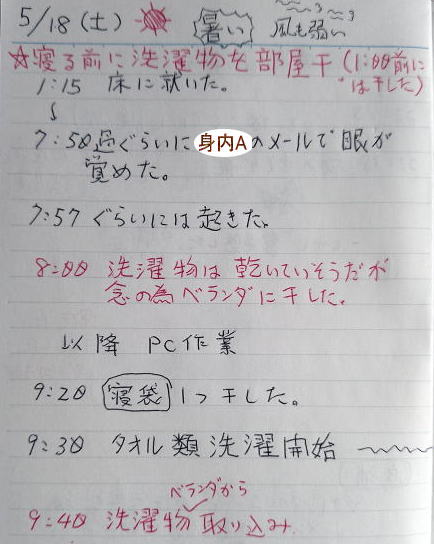 5/18(土) 暑い 風も弱い
☆寝る前に洗濯物を部屋干(1:00前に
は干した)
1:15 床に就いた。
7:50過ぐらいに身内Aのメールで眼が
覚めた。
7:57 ぐらいには起きた。
8:00 洗濯物は乾いていそうだが
念の為ベランダに干した。
以降 PC作業
9:20 寝袋1つ干した。
9:30 タオル類洗濯開始
ベランダから
9:40 洗濯物取り込み